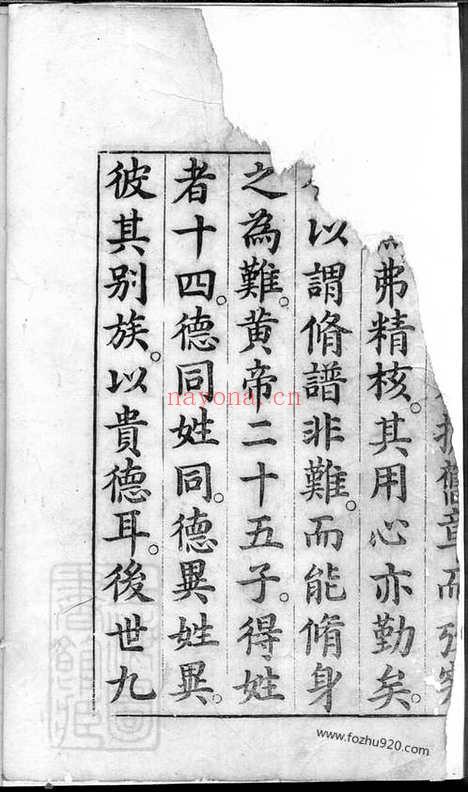 舊章而
弗精核。其用心亦勤矣。
以謂脩譜非難。而能脩身
之為難。黄帝二十五子。得姓
者十四。德同姓同。德異姓異。
彼其别族。以貴德耳。後世九
nayona.cn
www.fozhu920.com